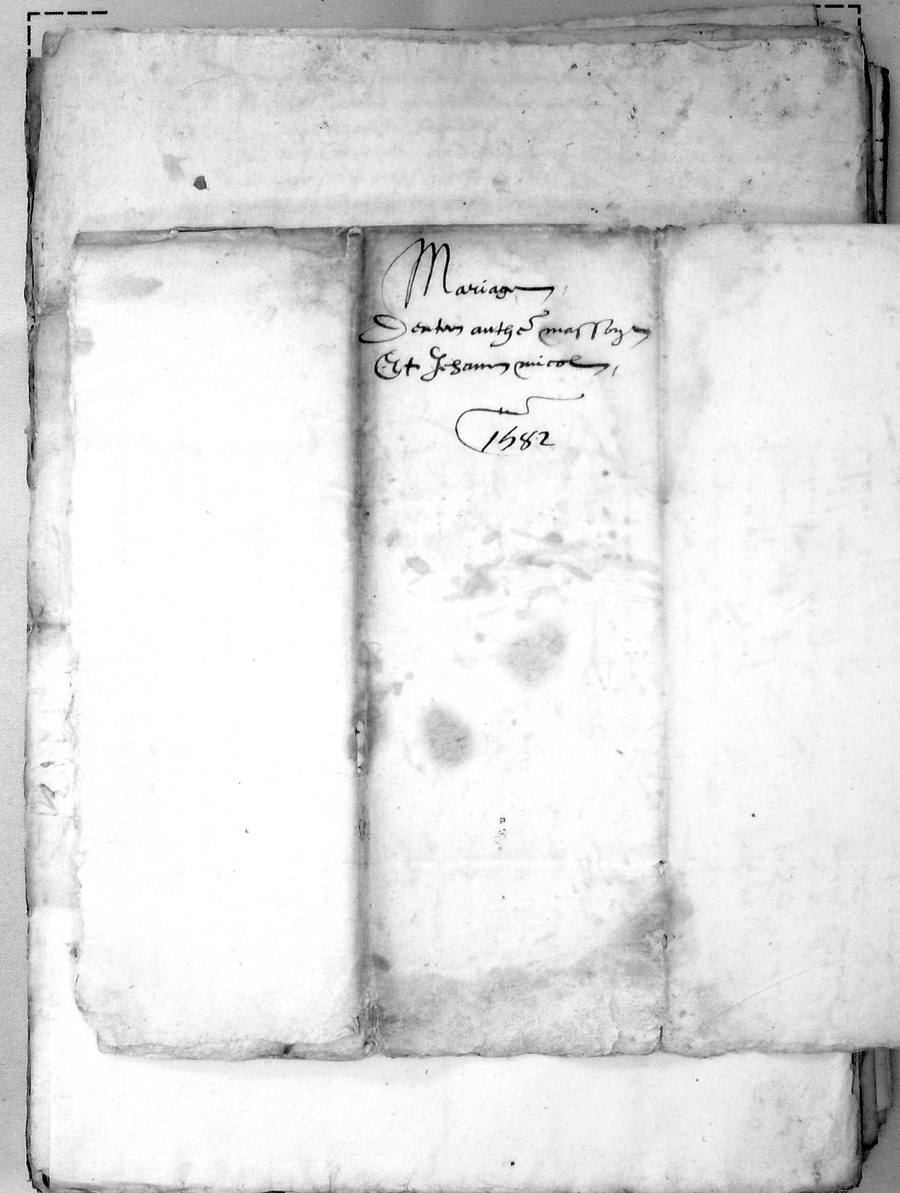 Mariage
Dentre anthe massoye
Et Jehanne nicole
1582